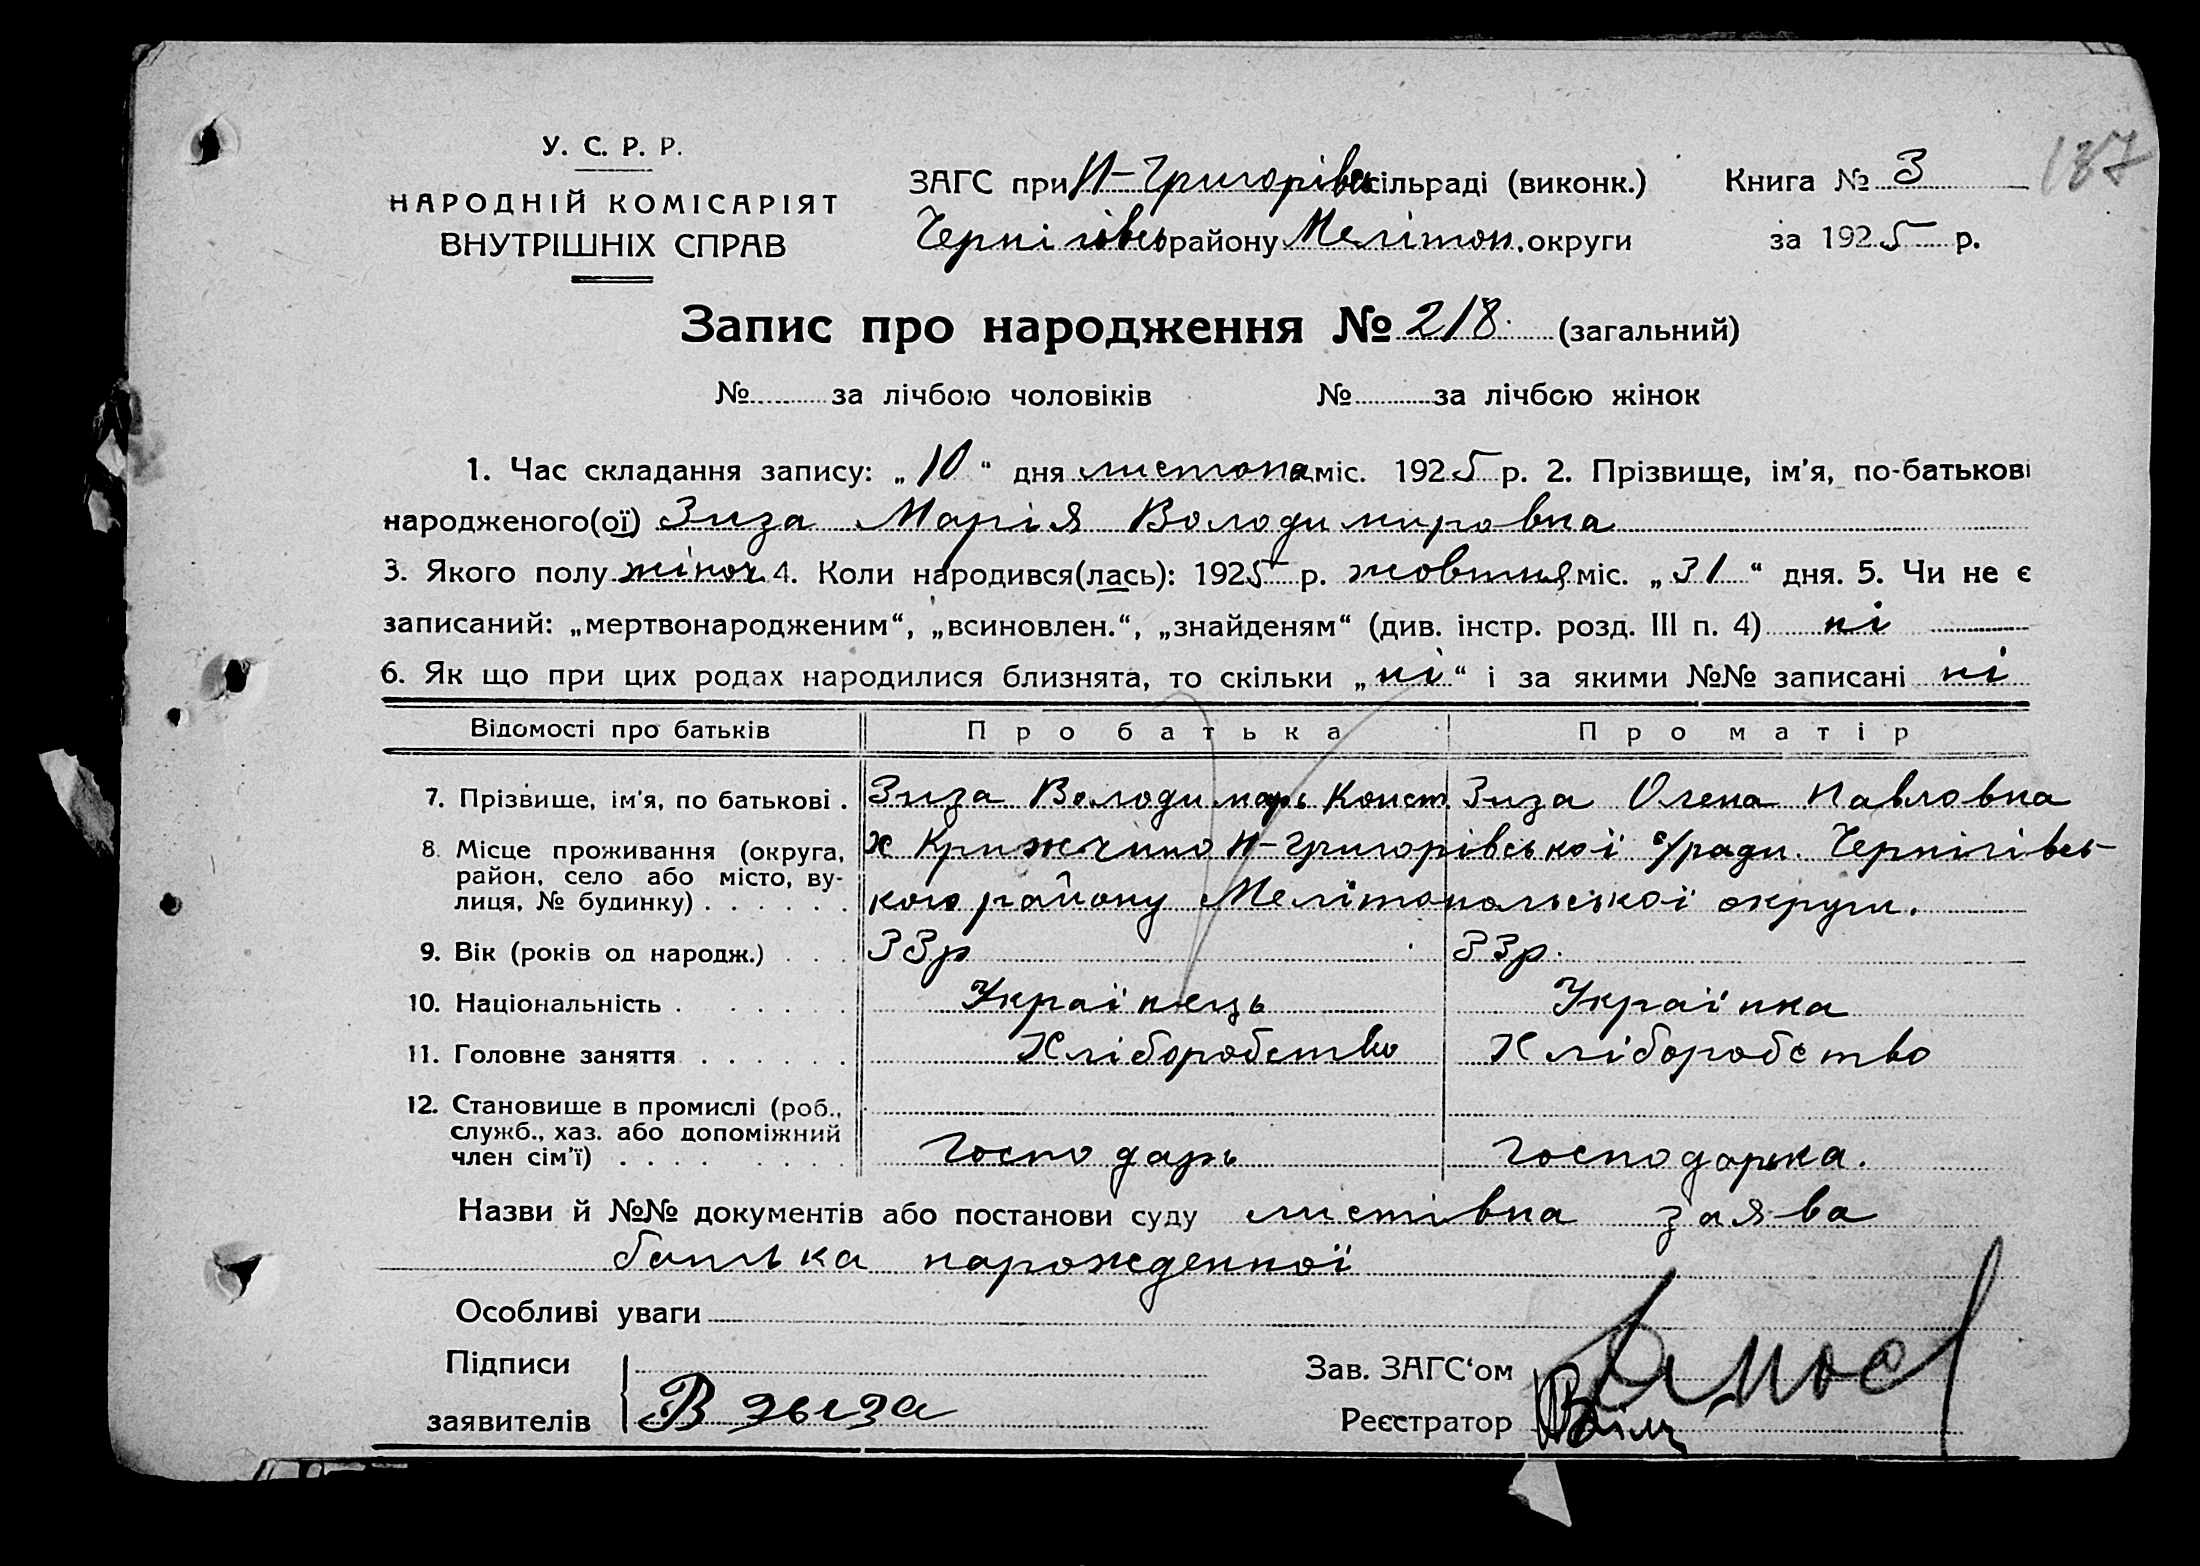 У. С. Р. Р.
НАРОДНІЙ КОМІСАРІЯТ
ВНУТРІШНІХ СПРАВ
ЗАГС при Н-Григорівсь сільраді (виконк.)
Чернігівсь району Мелітоп. округи
Книга № 3
за 1925 р.
187
Запис про народження № 218. (загальний)
№ за лічбою чоловіків № за лічбою жінок
1. Час складання запису: „10“ дня листопа міс. 1925 р. 2. Прізвище, ім'я, по-батькові
народженого(ої) Зиза Марія Володимировна
3. Якого полу жіноч. 4. Коли народився(лась): 1925 р. жовтня міс. „31“ дня. 5. Чи не є
записаний: „мертвонародженим“, „всиновлен.“, „знайденям“ (див. інстр. розд. III п. 4) ні
6. Як що при цих родах народилися близнята, то скільки „ні“ і за якими №№ записані ні
Відомості про батьків Про батька Про матір
7. Прізвище, ім'я, по батькові . Зиза Володимирь Конст. Зиза Олена Павловна
8. Місце проживання (округа, район, село або місто, вулиця, № будинку) х Крижчино Н-Григорівської с/ради. Чернігівсь-
кого району Мелітопольської округи.
9. Вік (років од народж.) 33р 33р.
10. Національність Українець Українка
11. Головне заняття Хліборобство Хліборобство
12. Становище в промислі (роб.,
служб., хаз. або допоміжний
член сім'ї) Господарь Господарька.
Назви й №№ документів або постанови суду листівна заява
батька нарожденної
Особливі уваги
Підписи
заявителів В Зыза
Зав. ЗАГС'ом
Реєстратор